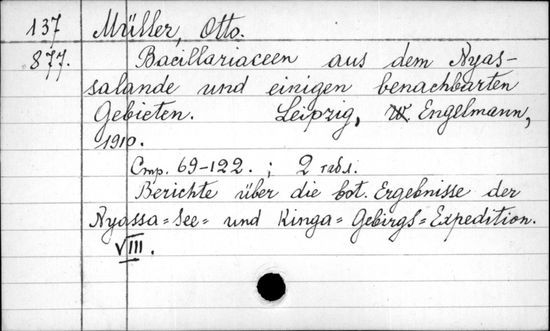 137 Müller, Otto.
877. Bacillariaceen aus dem Nyas-
salande und einigen benachbarten
Gebieten. Leipzig, W Engelmann,
1910.
Стр. 69-122. ; 2 табл.
Berichte über die bot. Ergebnisse der
Nyassa=See= und Kinga=Gebirgs=Expedition.
VIII.